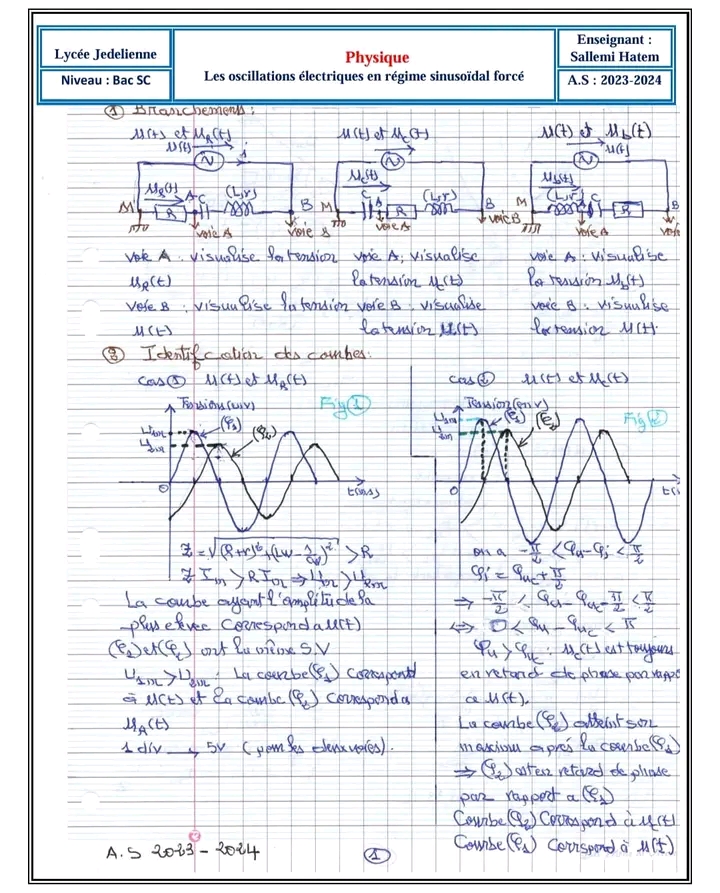 Lycée Jedelienne
Niveau : Bac SC
Physique
Les oscillations électriques en régime sinusoïdal forcé
Enseignant :
Sallemi Hatem
A.S : 2023-2024
① Branchement :
u(t) et u_R(t)
u(t) et u_c(t)
u(t) et u_b(t)
u(t)
i
u_R(t)
M
R
A
C
(L,r)
B
voie A
voie B
u_c(t)
M
C
A
R
(L,r)
B
voie A
voie B
u(t)
u_b(t)
M
(L,r)
A
C
R
B
voie A
voie A : visualise la tension
u_R(t)
voie B : visualise la tension
u(t)
voie A, visualise
la tension u_c(t)
voie B : visualise
la tension u(t)
voie A : visualise
la tension u_b(t)
voie B : visualise
la tension u(t).
② Identification des courbes.
cas ① u(t) et u_R(t)
Tensions (en V)
Fig ①
U₁m
U₂m
(ℰ₁)
(ℰ₂)
0
t(ms)
Z = √((R+r)²+(Lω-1/Cω)²) > R
Z Im > R Im ⇒ Um > URm
La courbe ayant l'amplitude la
plus elevée correspond a u(t)
(ℰ₁) et (ℰ₂) ont la même S.V
U₁m > U₂m : La courbe (ℰ₁) correspond
à u(t) et la courbe (ℰ₂) correspond a
u_R(t)
1 div → 5V (pour les deux voies).
cas ② u(t) et u_c(t)
Tension (en V)
Fig ②
U₁m
U₂m
(ℰ₁)
(ℰ₂)
0
on a -π/2 < φu-φi < π/2
φi = φuc + π/2
⇒ -π/2 < φu - φuc - π/2 < π/2
⇔ 0 < φu - φuc < π
φu > φuc : u_c(t) est toujours
en retard de phase par rappo
a u(t).
La courbe (ℰ₂) atteint son
maximum après la courbe (ℰ₁)
⇒ (ℰ₂) est en retard de phase
par rapport a (ℰ₁)
Courbe (ℰ₂) Correspond à u_c(t)
Courbe (ℰ₁) correspond à u(t)
A.S 2023 - 2024
①